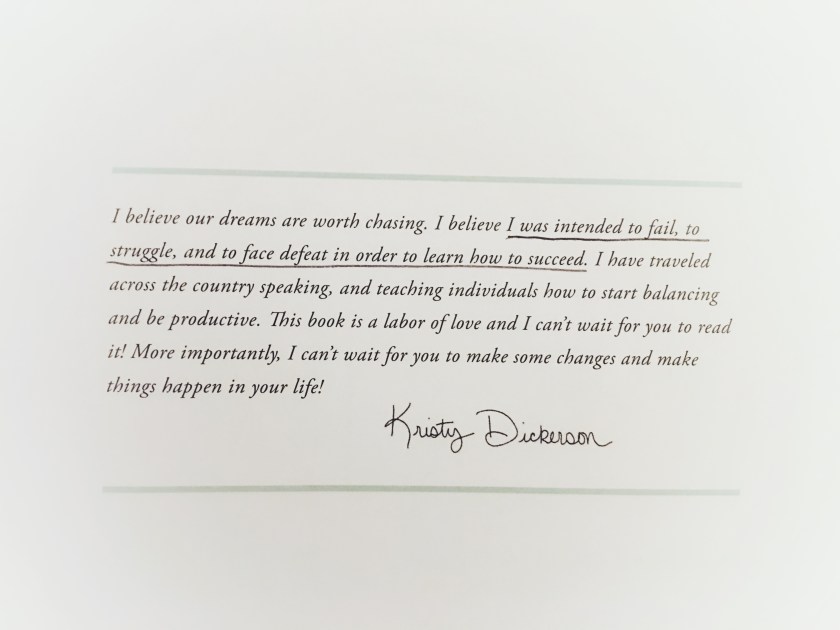 I believe our dreams are worth chasing. I believe I was intended to fail, to
struggle, and to face defeat in order to learn how to succeed. I have traveled
across the country speaking, and teaching individuals how to start balancing
and be productive. This book is a labor of love and I can't wait for you to read
it! More importantly, I can't wait for you to make some changes and make
things happen in your life!
Kristy Dickerson